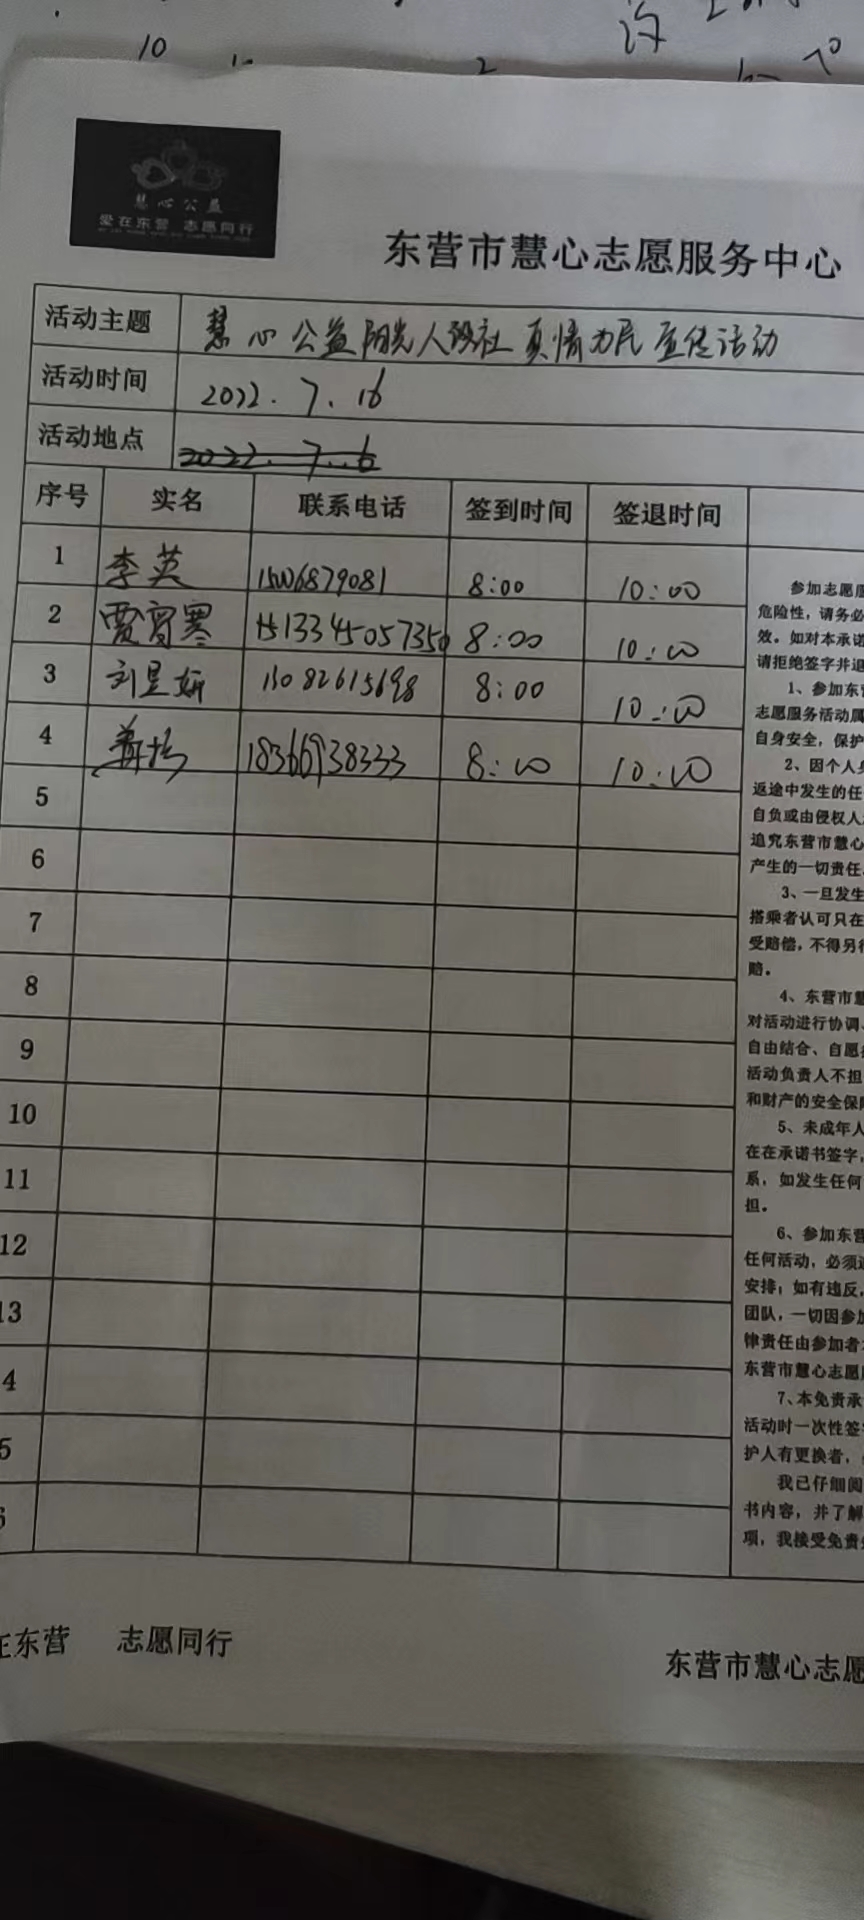 10
慧心公益
爱在东营 志愿同行
东营市慧心志愿服务中心
活动主题 慧心公益阳光人社 真情为民宣传活动
活动时间 2022.7.16
活动地点 2022.7.6
序号 实名 联系电话 签到时间 签退时间
1 李英 15006879081 8:00 10:00
2 贾宵寒 8:00 10:00
3 刘昱妍 13082615698 8:00 10:00
4 18366938333 8:00 10:00
5
6
7
8
9
10
11
12
13
4
5
参加志愿服
危险性，请务必
效。如对本承诺
请拒绝签字并退
1、参加东营
志愿服务活动属
自身安全，保护
2、因个人身
返途中发生的任
自负或由侵权人
追究东营市慧心
产生的一切责任
3、一旦发生
搭乘者认可只在
受赔偿，不得另行
赔。
4、东营市慧
对活动进行协调、
自由结合、自愿
活动负责人不担
和财产的安全保障
5、未成年人
在在承诺书签字，
系，如发生任何
担。
6、参加东营
任何活动，必须
安排；如有违反，
团队，一切因参加
律责任由参加者
东营市慧心志愿服
7、本免责承
活动时一次性签字
护人有更换者，
我已仔细阅
书内容，并了解
项，我接受免责
在东营 志愿同行
东营市慧心志愿